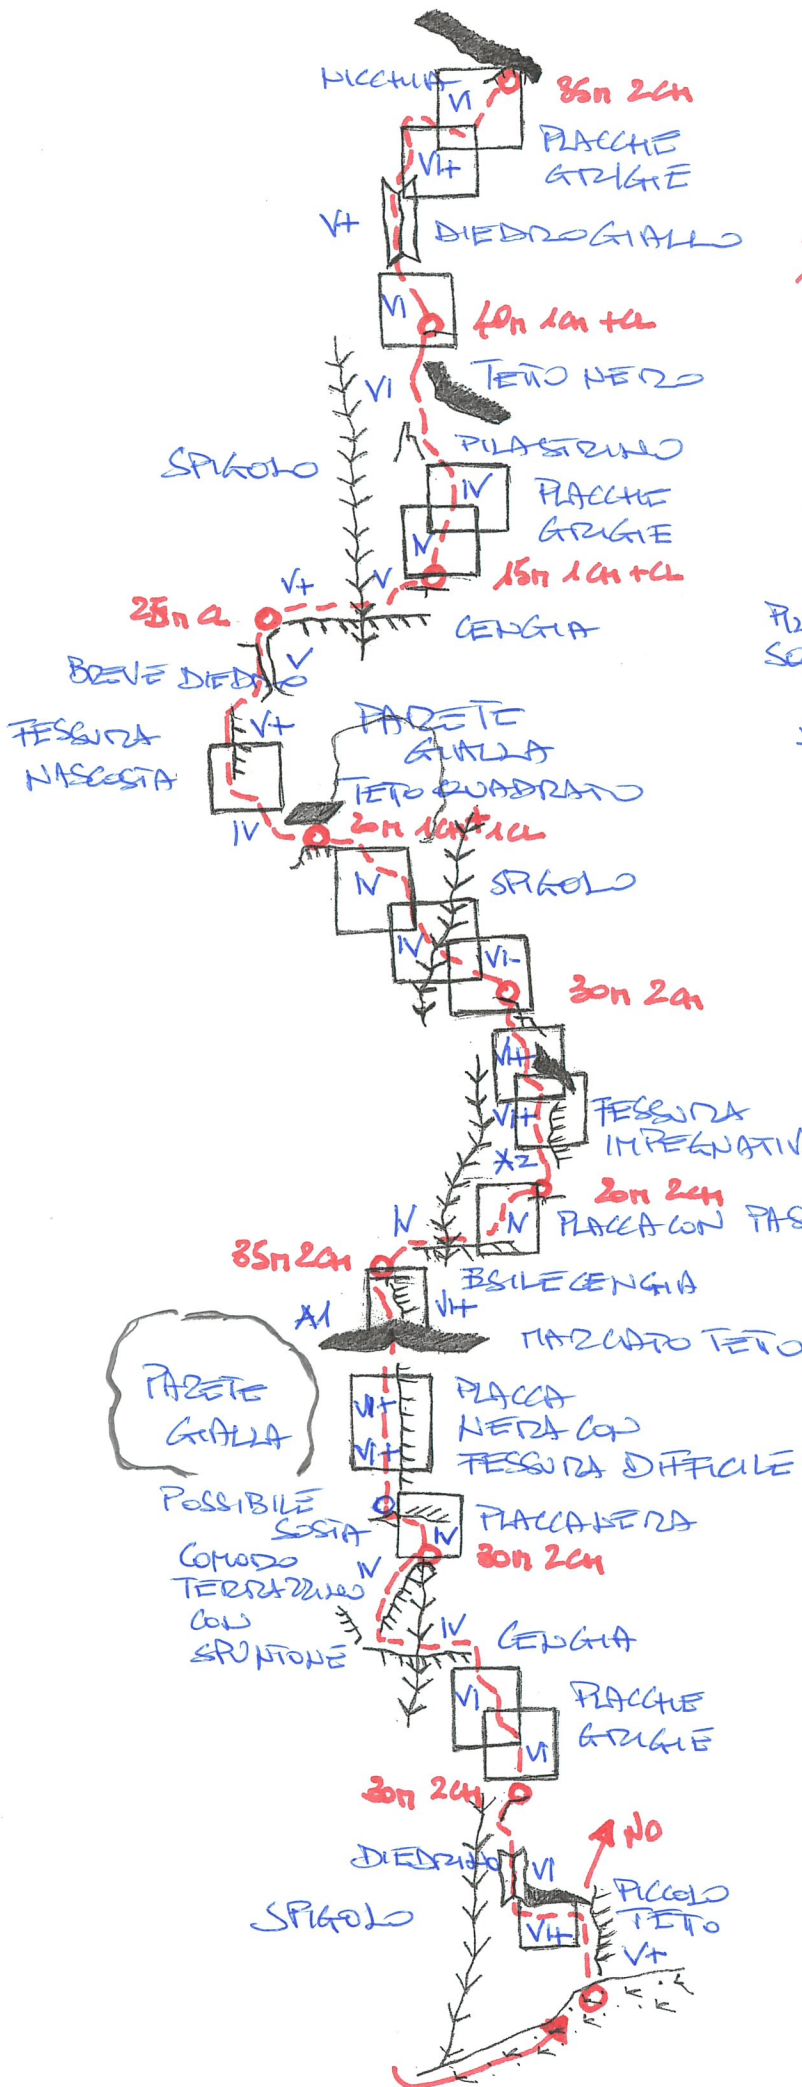 NICCHIA
VI
35m 2CH
VI+
PLACCHE
GRIGIE
V+
DIEDRO GIALLO
VI
40m 1CH + CL
VI
TETTO NERO
PILASTRINO
SPIGOLO
IV
PLACCHE
GRIGIE
IV
15m 1CH + CL
V+
V
25m CL
CENGIA
V
BREVE DIEDRO
V+
FESSURA
NASCOSTA
PARETE
GIALLA
TETO QUADRATO
IV
20m 1CH + 1CL
IV
SPIGOLO
IV
VI-
30m 2CH
VI+
VI+
FESSURA
IMPEGNATIV
A2
20m 2CH
IV
IV
PLACCA CON PAS
35m 2CH
ESILE CENGIA
A1
VI+
MARCATO TETTO
PARETE
GIALLA
VI+
VI+
PLACCA
NERA CON
FESSURA DIFFICILE
POSSIBILE
SOSTA
IV
PLACCA NERA
30m 2CH
COMODO
TERRAZZINO
CON
SPUNTONE
IV
IV
CENGIA
VI
PLACCHE
GRIGIE
VI
30m 2CH
NO
DIEDRINO
VI
PICCOLO
TETTO
SPIGOLO
VI+
V+